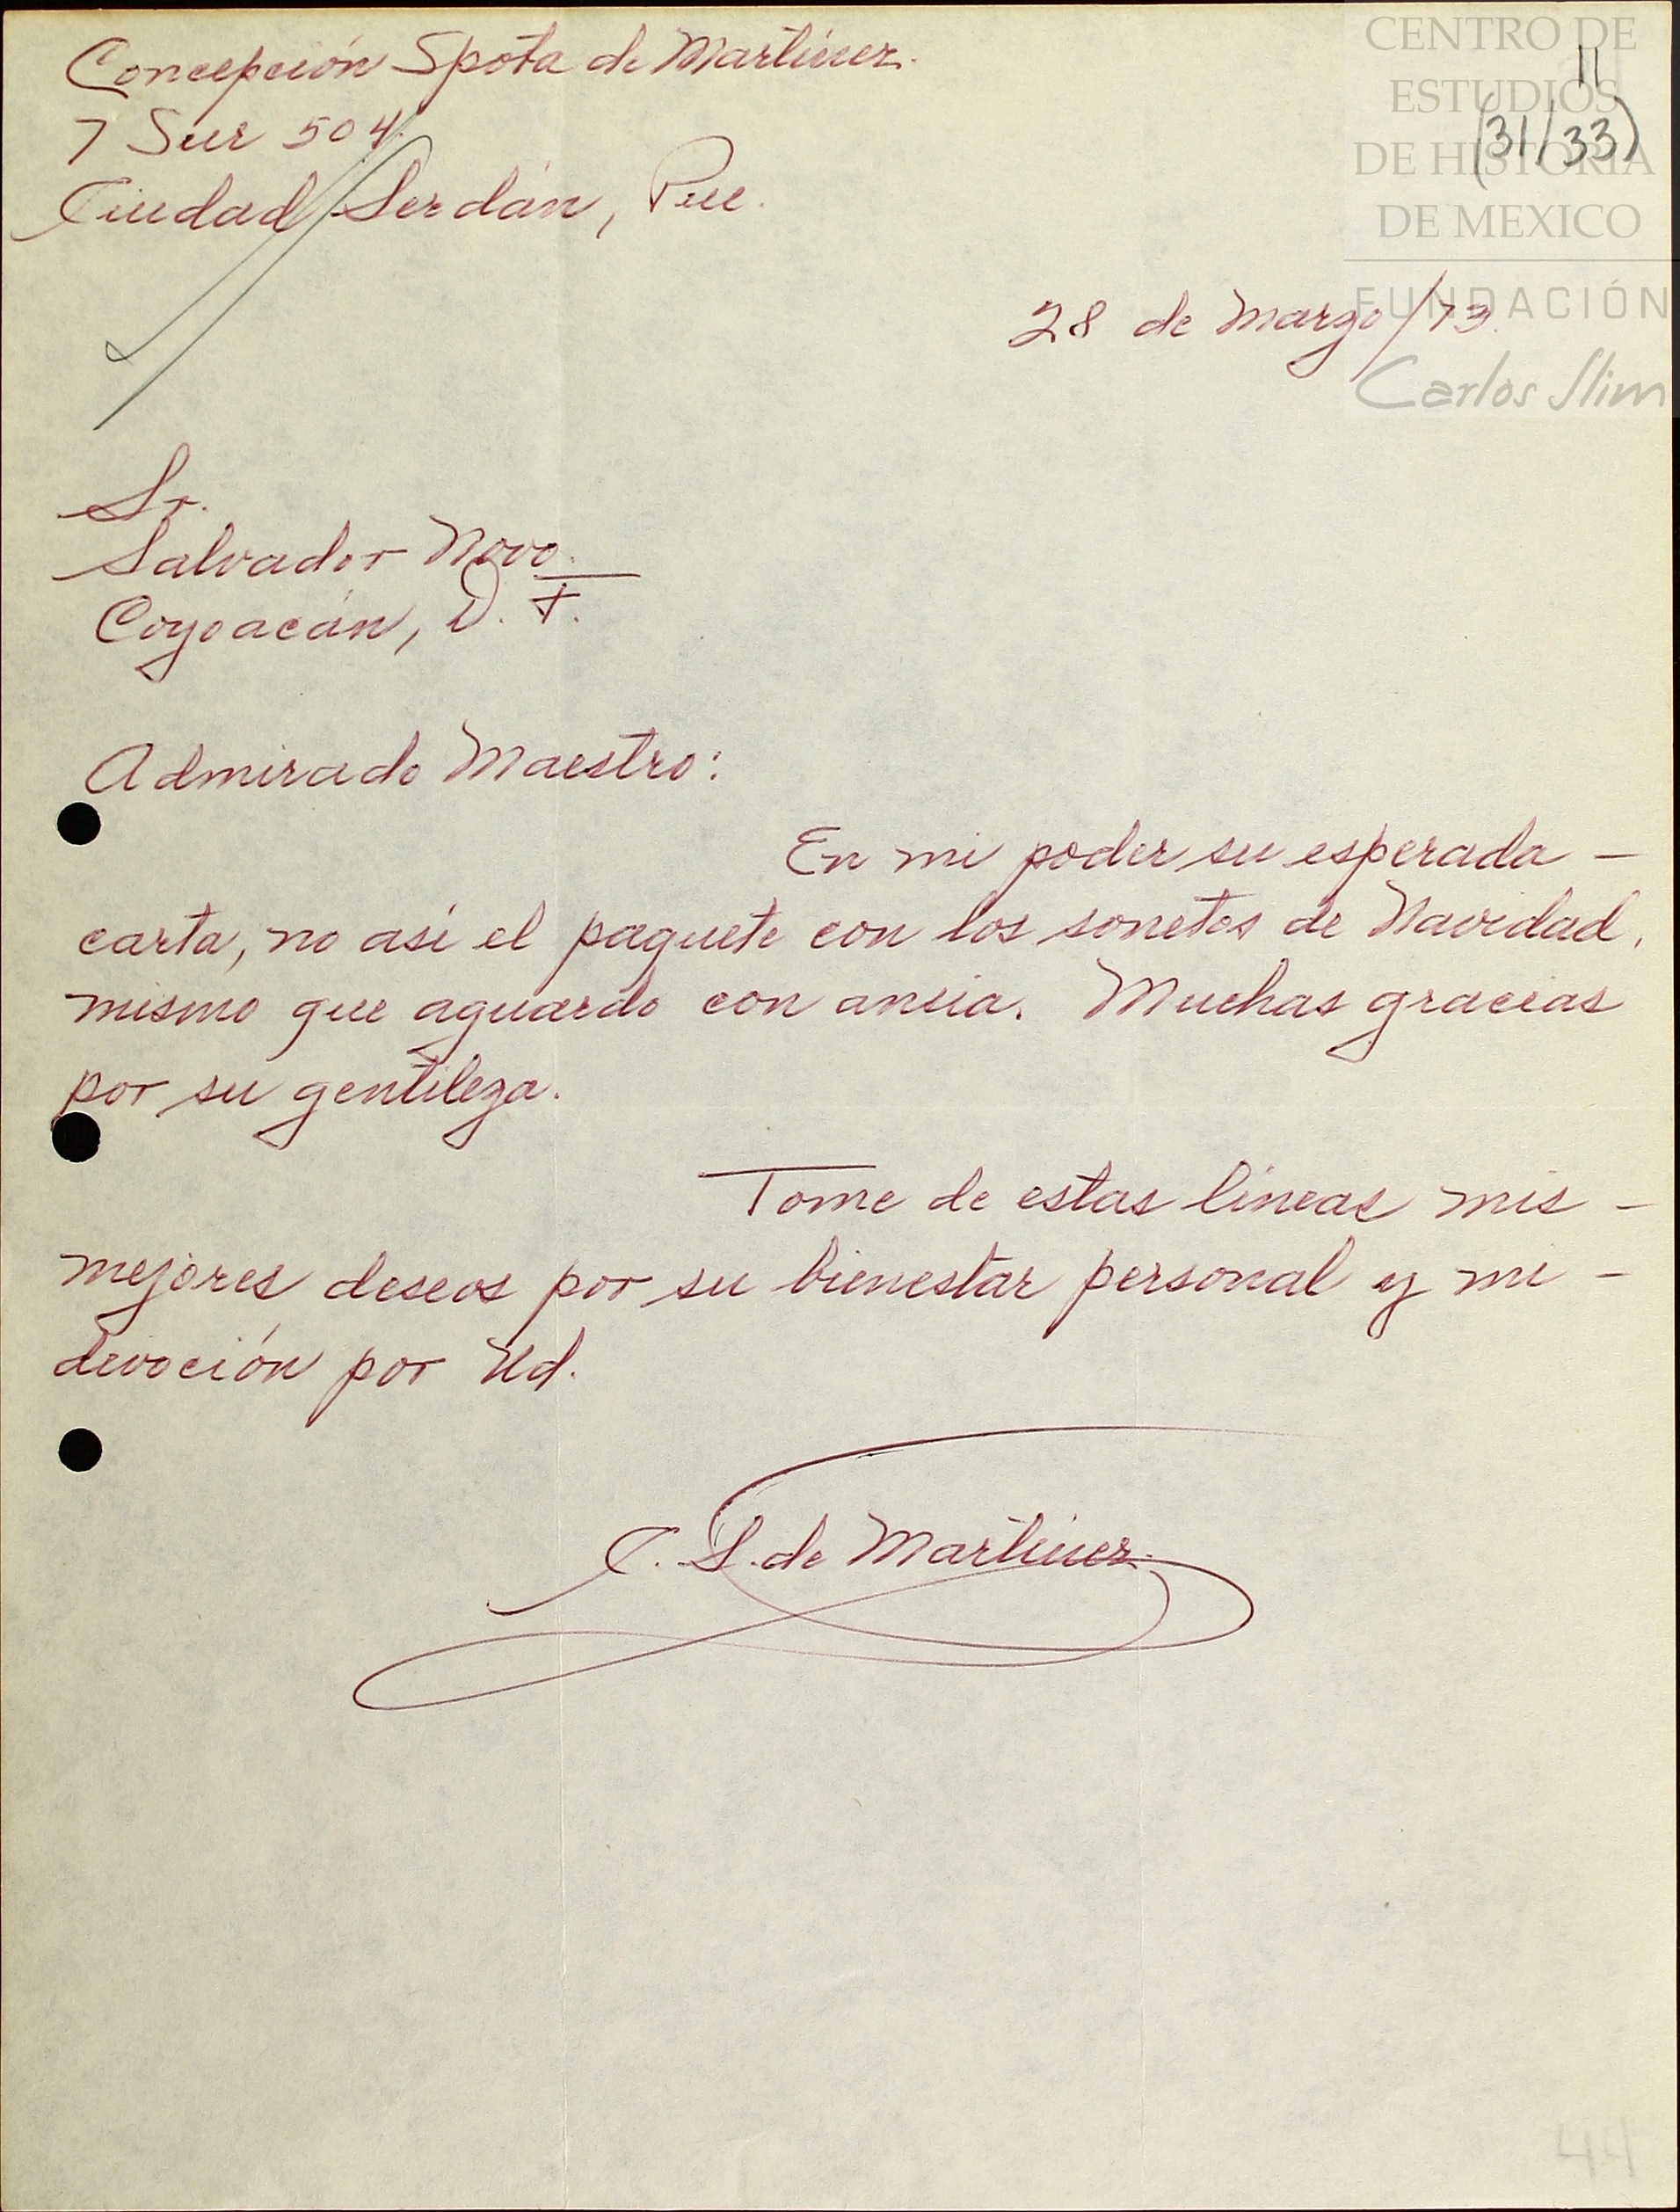 Concepción Spota de Martínez.
7 Sur 504
Ciudad Serdán, Pue.
CENTRO DE
ESTUDIOS
DE HISTORIA
DE MEXICO
FUNDACIÓN
Carlos Slim
11
(31/33)
28 de Marzo/73.
Sr.
Salvador Novo.
Coyoacán, D. F.
Admirado Maestro:
En mi poder su esperada -
carta, no así el paquete con los sonetos de Navidad,
mismo que aguardo con ansia. Muchas gracias
por su gentileza.
Tome de estas líneas mis -
mejores deseos por su bienestar personal y mi -
devoción por Ud.
C. S. de Martínez.
44